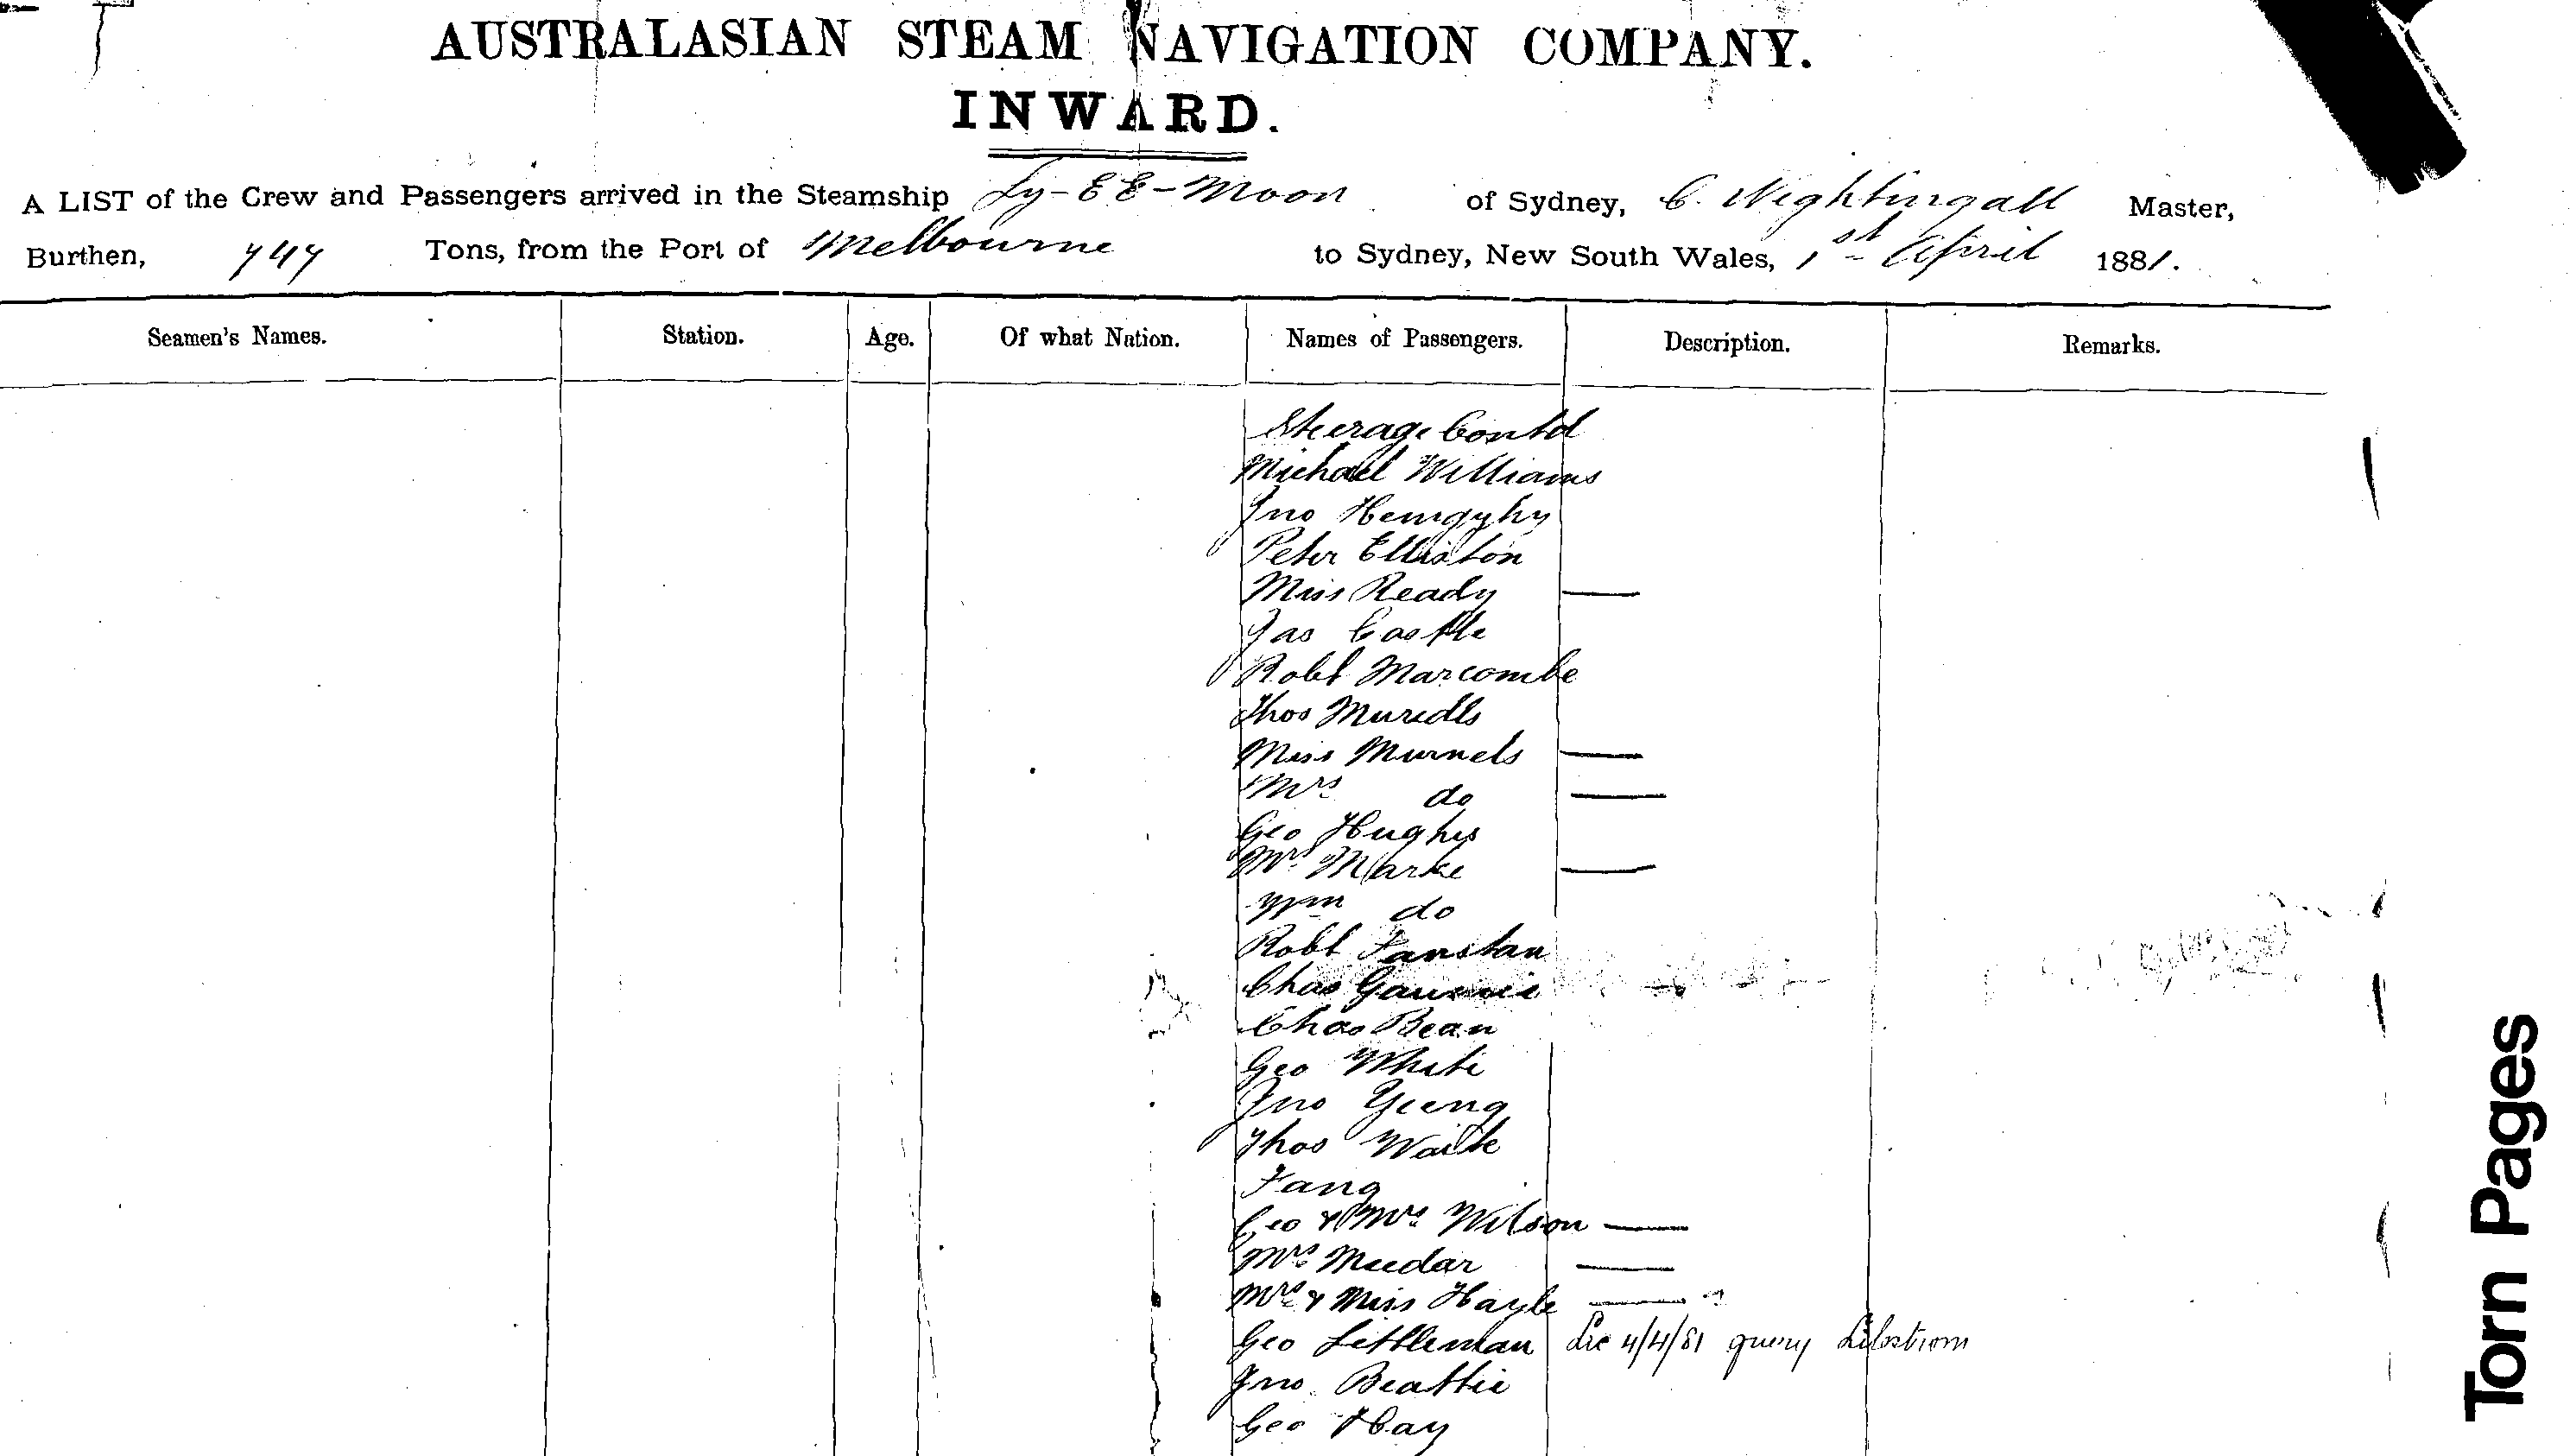 AUSTRALASIAN STEAM NAVIGATION COMPANY.
INWARD.
A LIST of the Crew and Passengers arrived in the Steamship Ly-EE-Moon of Sydney, C. Nightingall Master,
Burthen, 747 Tons, from the Port of Melbourne to Sydney, New South Wales, 1st April 1881.
Seamen's Names. Station. Age. Of what Nation. Names of Passengers. Description. Remarks.
Steerage Contd
Michael Williams
Jno
Peter Elliston
Miss Ready —
Jas Castle
Robt Marcombe
Thos
Miss —
Mrs do —
Geo Hughes
Mrs —
Wm do
Robt
Chas
Chas Bean
Geo White
Jno Yeeng
Thos Waite
Fang
Geo & Mrs Wilson —
Mrs Meedar —
Mrs & Miss Hayle —
Geo Littleman die 4/4/81 query
Jno Beattie
Geo Hay
Torn Pages